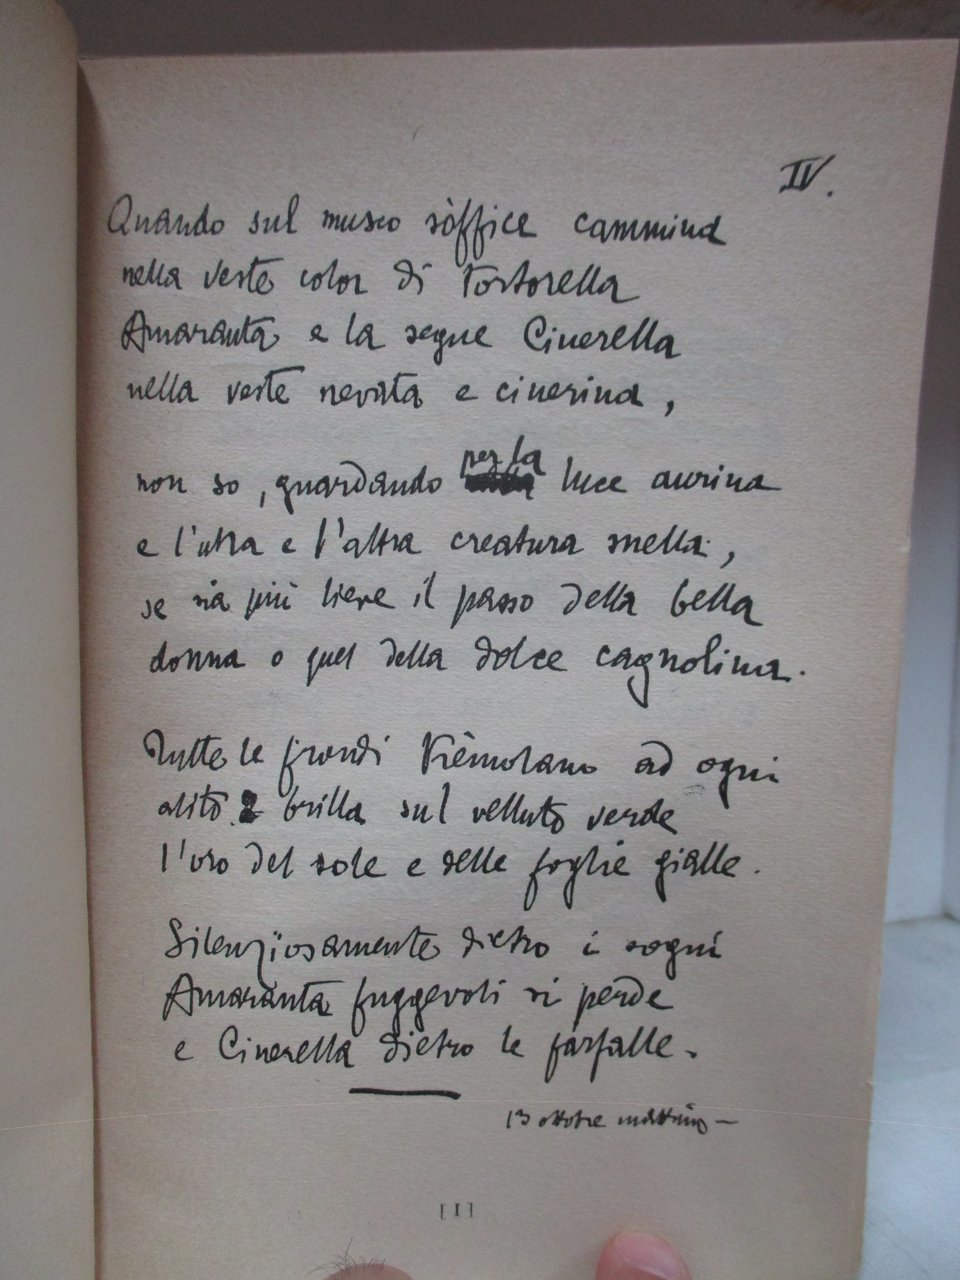 IV.
Quando sul musco sòffice cammina
nella veste color di tortorella
Amaranta e la segue Cinerella
nella veste nevata e cinerina,
non so, guardando per la luce aurina
e l'una e l'altra creatura snella,
se sia più lieve il passo della bella
donna o quel della dolce cagnolina.
Tutte le frondi trèmolano ad ogni
alito. E brilla sul velluto verde
l'oro del sole e delle foglie gialle.
Silenziosamente dietro i sogni
Amaranta fuggevoli si perde
e Cinerella dietro le farfalle.
13 ottobre mattino -
[1]